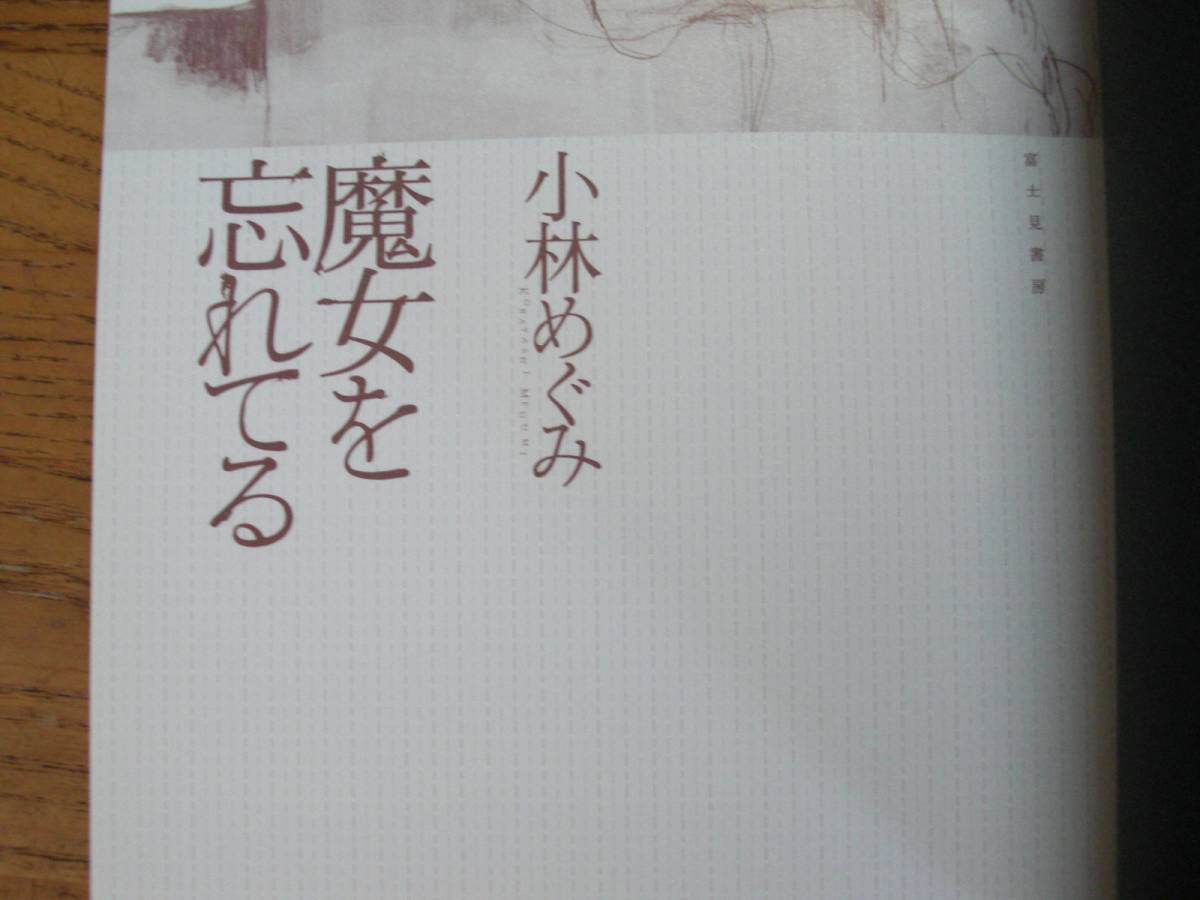 富士見書房
小林めぐみ
KOBAYASHI MEGUMI
魔女を
忘れてる